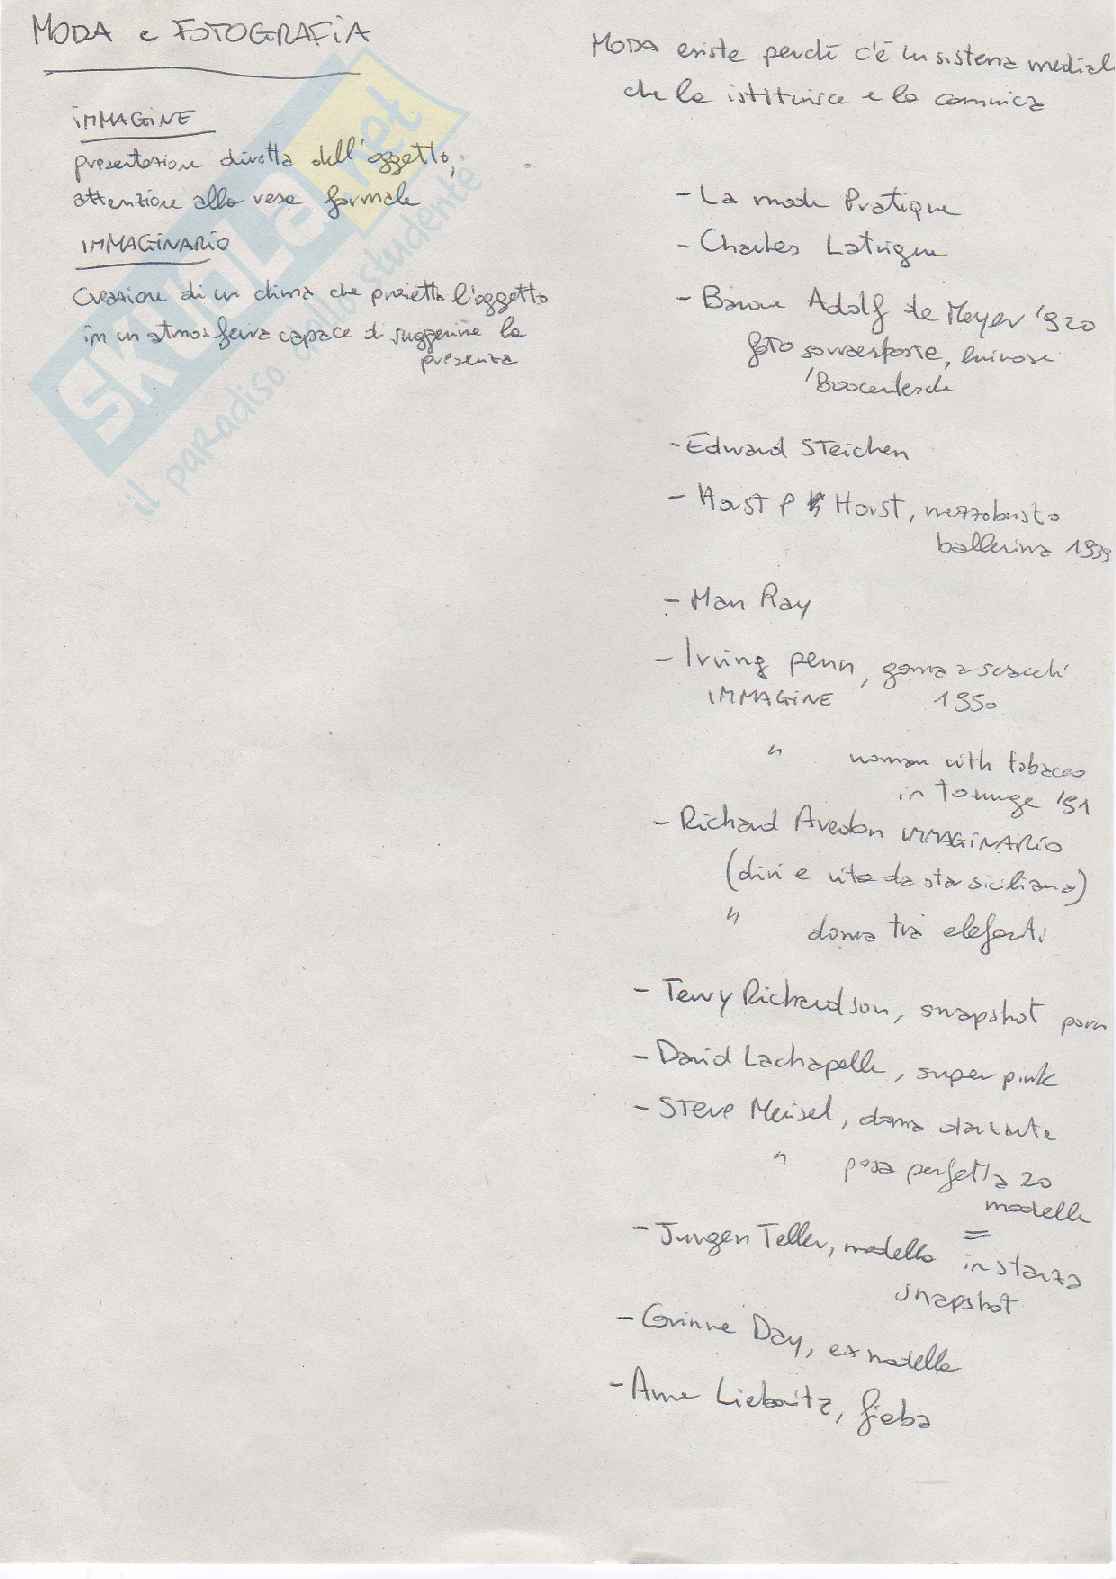 MODA e FOTOGRAFIA
IMMAGINE
presentazione diretta dell'oggetto,
attenzione alla resa formale
IMMAGINARIO
Creazione di un clima che proietta l'oggetto
in un atmosfera capace di suggerire la
presenza
MODA esiste perchè c'è un sistema medial
che la istituisce e la comunica
- La mode Pratique
- Charles Latrigue
- Barone Adolf de Meyer '920
foto sovraesposte, luminose
- Edward Steichen
- Horst P Horst, mezzobusto
ballerina 1939
- Man Ray
- Irving penn, gonna a scacchi
IMMAGINE 1950
" woman with tobacco
in tounge '51
- Richard Avedon IMMAGINARIO
(divi e vita da star siciliana)
" donna tra elefanti
- Terry Richardson, snapshot porn
- David Lachapelle, super pink
- Steve Meisel, donna
" posa perfetta 20
modelle
- Jurgen Teller, modella in stanza
snapshot
- Corinne Day, ex modella
- Anne Liebovitz, fieba
skuola.net
il paradiso dello studente